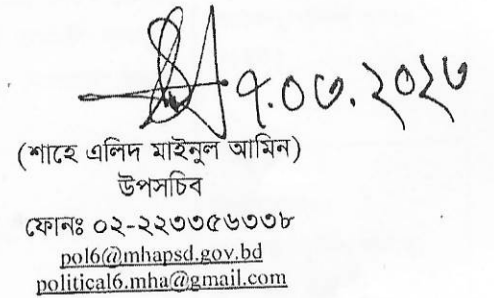 ৭.০৩.২০২৩
(শাহে এলিদ মাইনুল আমিন)
উপসচিব
ফোনঃ ০২-২২৩৩৫৬৩৩৮
pol6@mhapsd.gov.bd
political6.mha@gmail.com